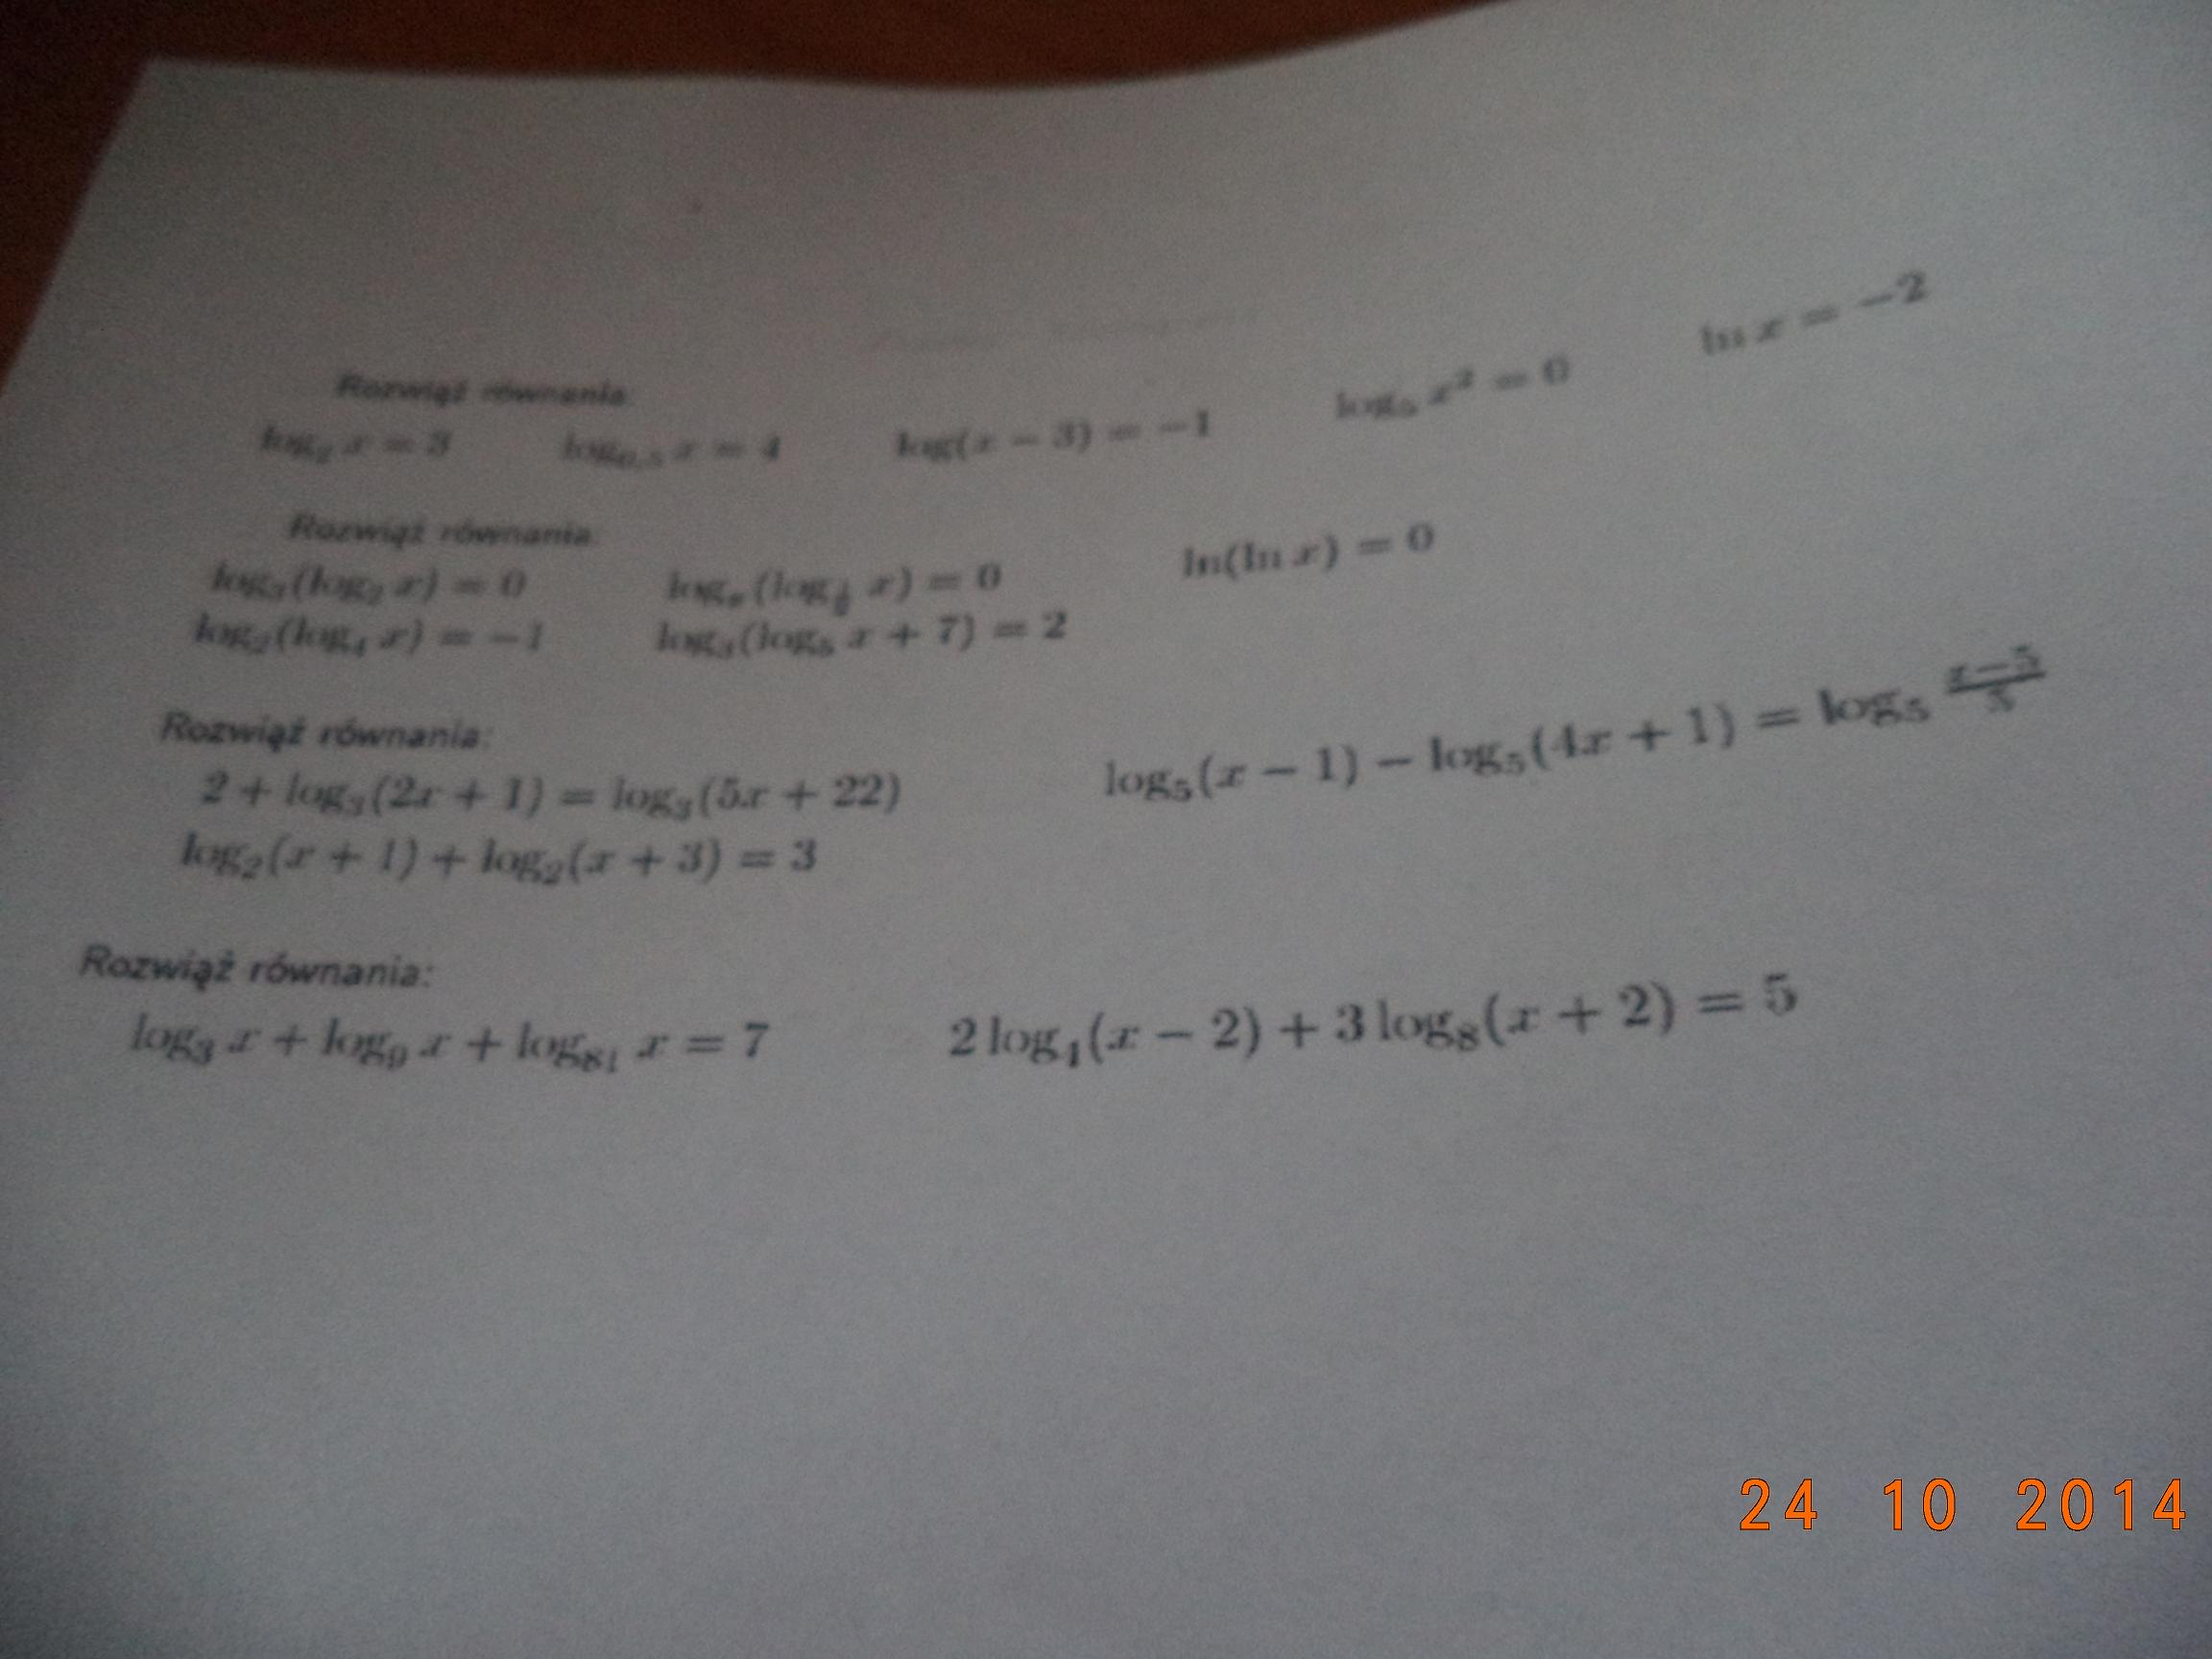 Rozwiąż równania:
log₂ x = 3 log₀,₅ x = 4 log(x − 3) = −1 log₅ x² = 0 ln x = −2
Rozwiąż równania:
log₃(log₂ x) = 0 (log x) = 0 ln(ln x) = 0
log₂(log₄ x) = −1 log₃(log₅ x + 7) = 2
Rozwiąż równania:
2 + log₃(2x + 1) = log₃(5x + 22) log₅(x − 1) − log₅(4x + 1) = log₅ (x−5)/5
log₂(x + 1) + log₂(x + 3) = 3
Rozwiąż równania:
log₃ x + log₉ x + log₈₁ x = 7 2 log₄(x − 2) + 3 log₈(x + 2) = 5
24 10 2014